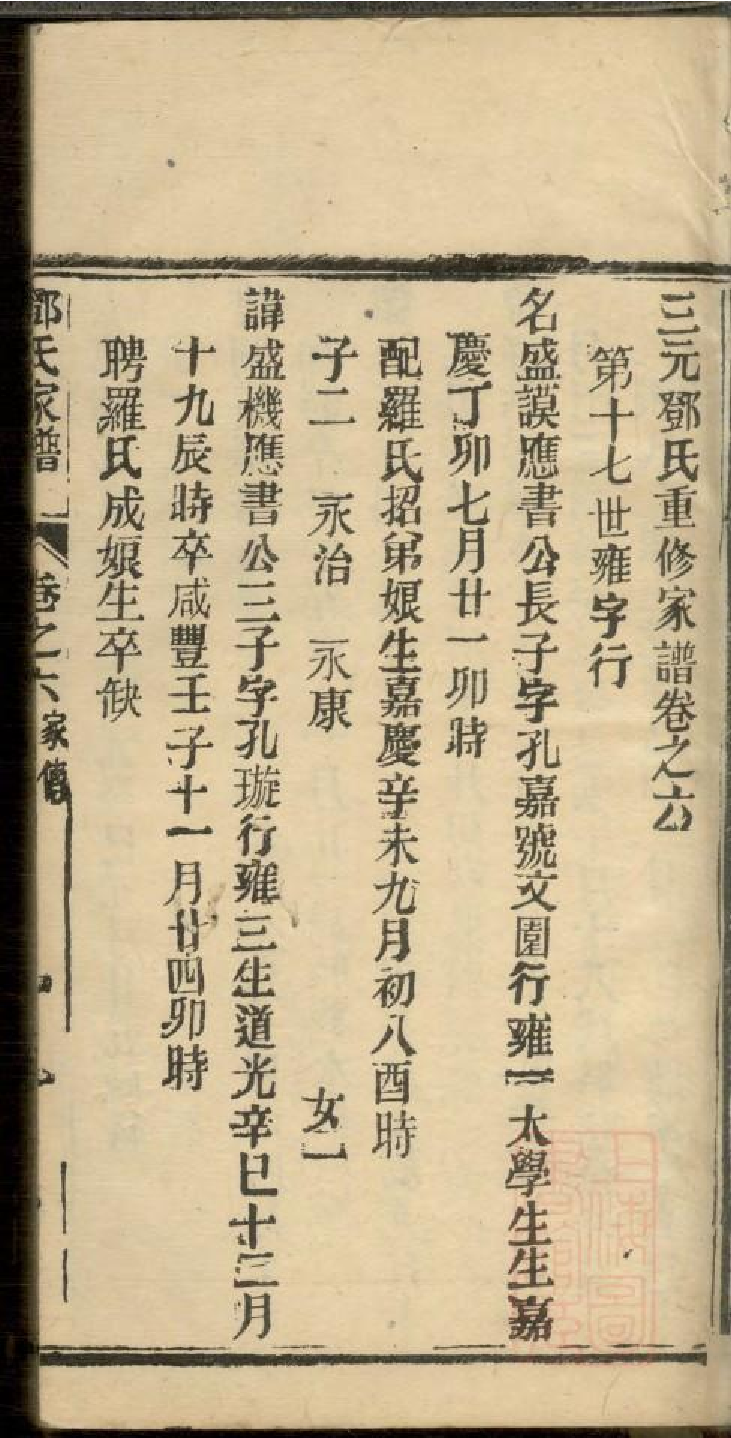 三元鄧氏重修家譜卷之六
第十七世雍字行
名盛謨應書公長子字孔嘉號文園行雍一太學生生嘉
慶丁卯七月廿一卯時
配羅氏招弟娘生嘉慶辛未九月初八酉時
子二 永治 永康 女一
諱盛機應書公三子字孔璇行雍三生道光辛巳十二月
十九辰時卒咸豐壬子十一月廿四卯時
聘羅氏成娘生卒缺
鄧氏家譜 卷之六 家傳